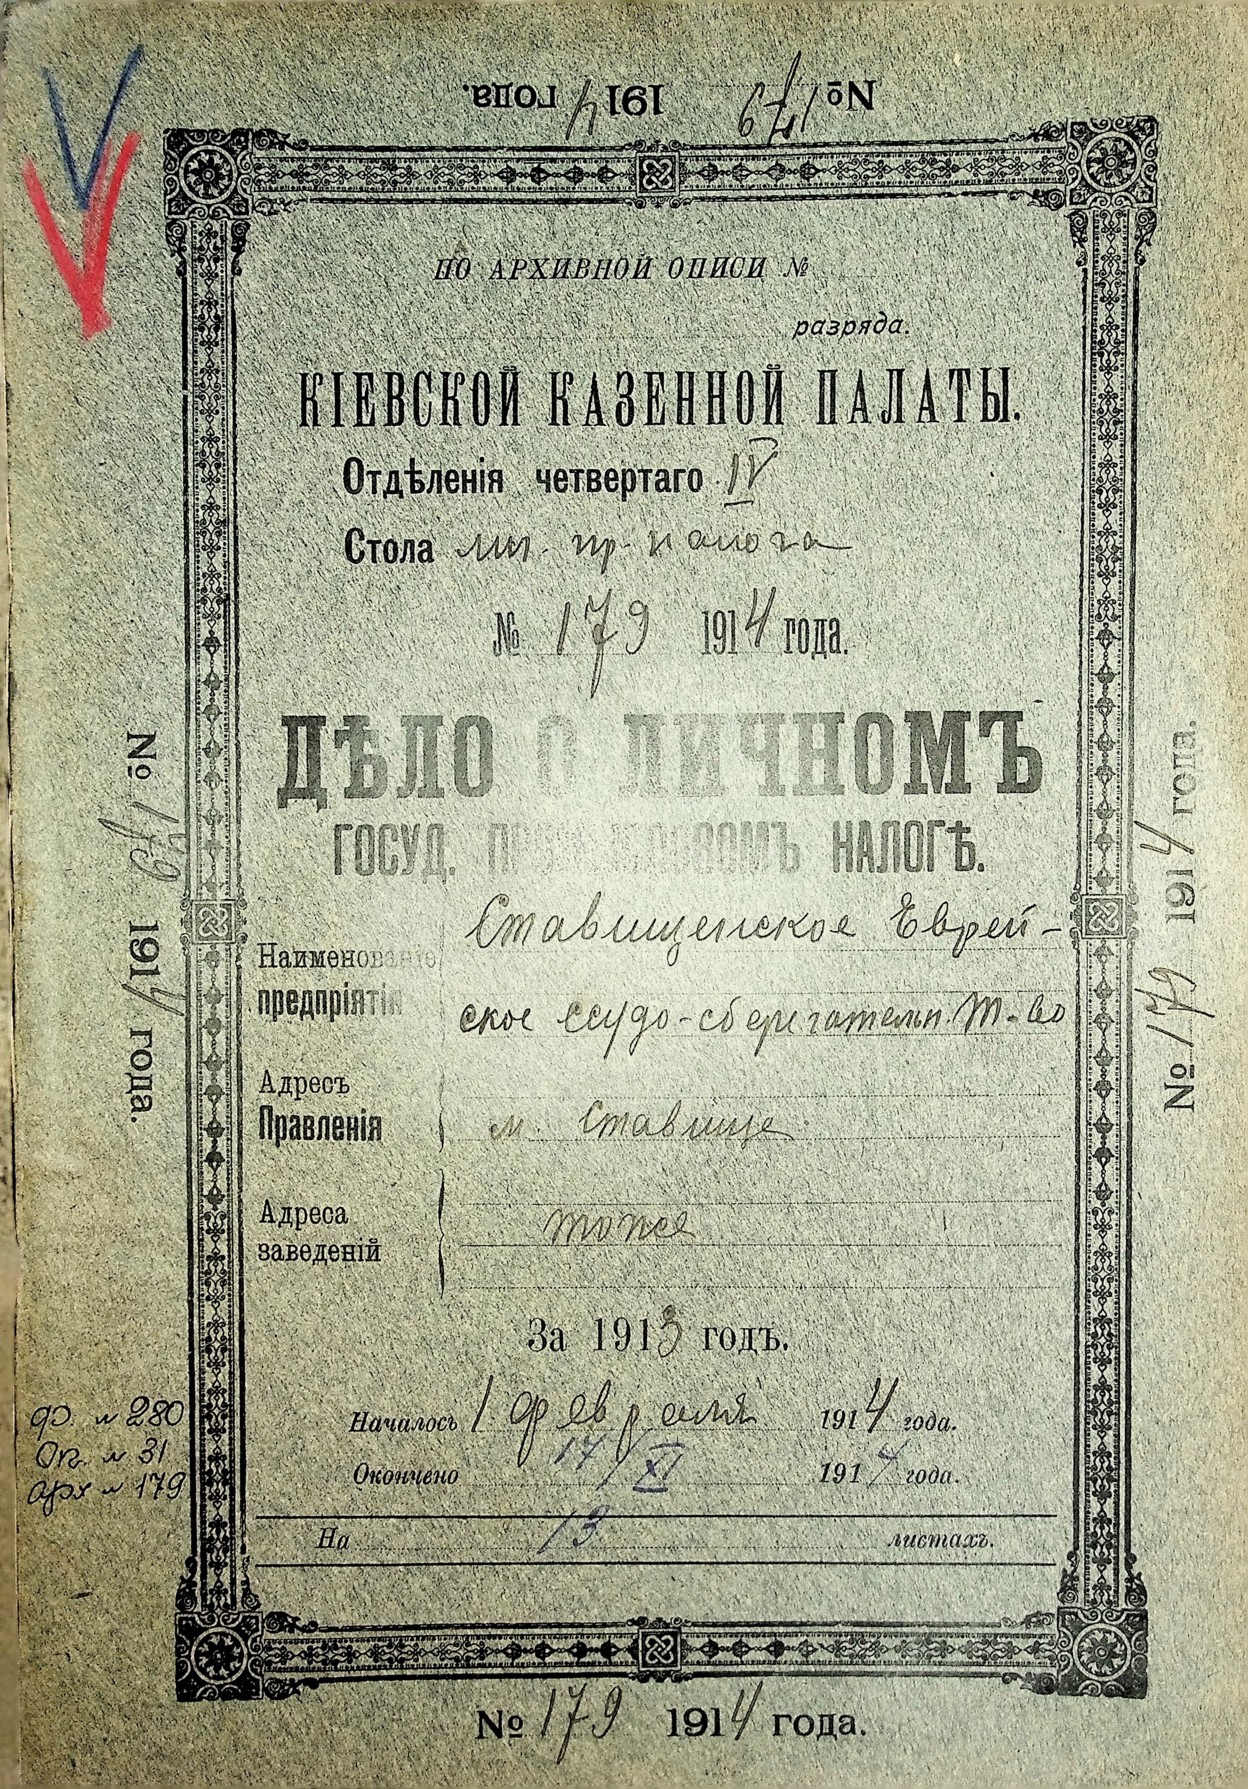 № 179 1914 года.
ПО АРХИВНОЙ ОПИСИ №
разряда.
КІЕВСКОЙ КАЗЕННОЙ ПАЛАТЫ.
Отдѣленія четвертаго IV
Стола пр. налога
№ 179 1914 года.
ДѢЛО О ЛИЧНОМЪ
ГОСУД. ПРОМЫСЛОВОМЪ НАЛОГѢ.
Наименованіе
предпріятія
Ставищенское Еврей-
ское ссудо-сберегательн. Т-во
Адресъ
Правленія
м. Ставище
Адреса
заведеній
тоже
За 1913 годъ.
Началось 1 февраля 1914 года.
Окончено 17/XI 1914 года.
На 13 листахъ.
№ 179 1914 года.
№ 179 1914 года.
№ 179 1914 года.
ф. № 280
Оп. № 31
арх № 179